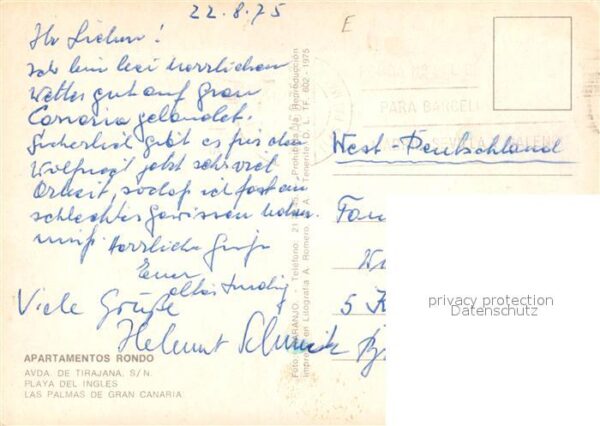 22.8.75
E
Ihr Lieben!
Ich bin bei herrlichem
Wetter gut auf Gran
Canaria gelandet.
Sicherlich gibt es für den
Wolfgang jetzt sehr viel
Arbeit, sodaß ich fast ein
schlechtes Gewissen haben
muß. Herzliche Grüße
Euer
Viele Grüße
Helmut
PARA BARCEL
West-Deutschland
Fam
5 K
privacy protection
Datenschutz
Foto: NARANJO. - Teléfono: 21
Prohibida la Reproducción
impreso en Litografía A. Romero, S. A. - Tenerife D. L. TF. 602 1975
APARTAMENTOS RONDO
AVDA. DE TIRAJANA, S/N.
PLAYA DEL INGLES
LAS PALMAS DE GRAN CANARIA